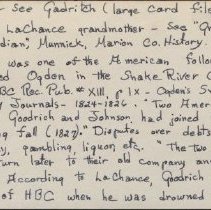 see Gadritch (large card file
LaChance grandmother - see "Gr
dian", Munnick, Marion Co. History.
was one of the American follow
ed Ogden in the Snake River C
BC Rec. Pub. # XIII, p IX - Ogden's Sn
y Journals - 1824-1826. "Two Amer
Goodrich and Johnson had joined
ng fall (1827)." Disputes over debts
y, gambling, liquor etc. "The two
urn later to their old company and
According to LaChance, Goodrich
of HBC when he was drowned